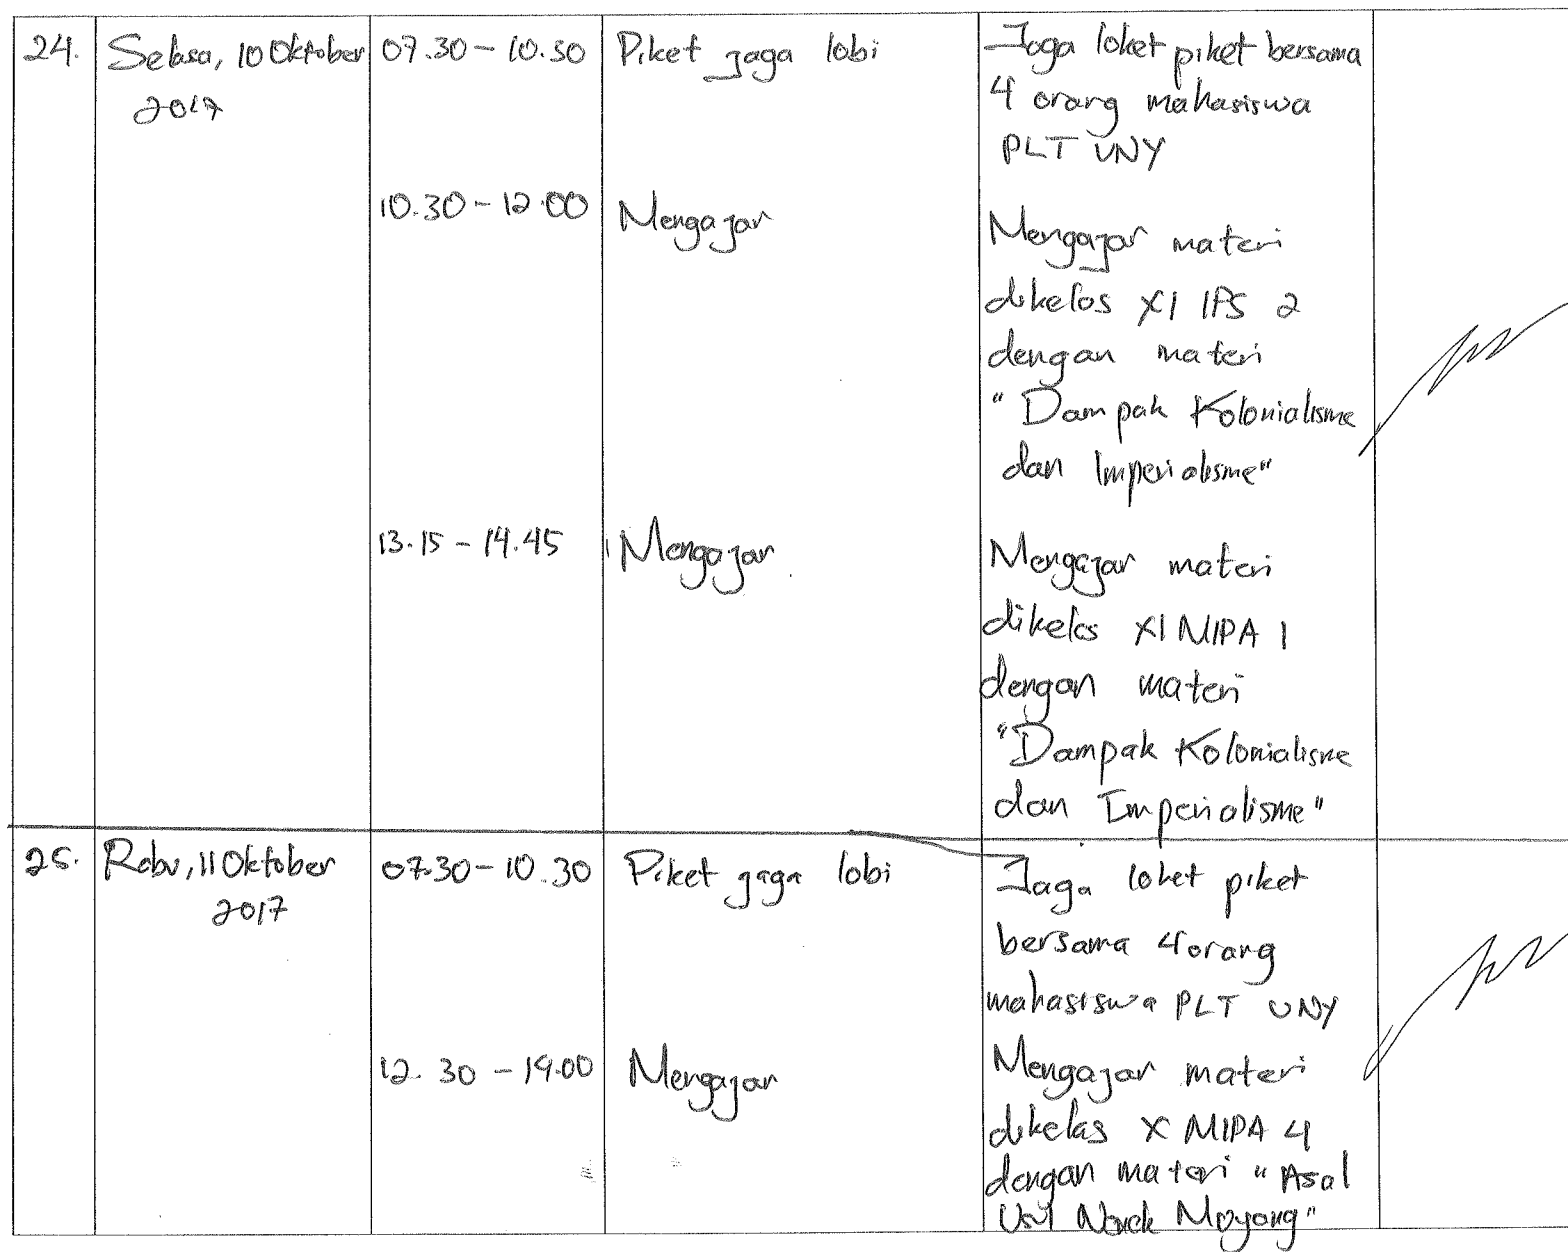 24. Selasa, 10 Oktober 07.30 - 10.30 Piket jaga lobi Jaga loket piket bersama
2017 4 orang mahasiswa
PLT UNY
10.30 - 12.00 Mengajar Mengajar materi
dikelas XI IPS 2
dengan materi
"Dampak Kolonialisme
dan Imperialisme"
13.15 - 14.45 Mengajar Mengajar materi
dikelas XI MIPA 1
dengan materi
"Dampak Kolonialisme
dan Imperialisme"
25. Rabu, 11 Oktober 07.30 - 10.30 Piket jaga lobi Jaga loket piket
2017 bersama 4 orang
mahasiswa PLT UNY
12.30 - 14.00 Mengajar Mengajar materi
dikelas X MIPA 4
dengan materi "Asal
Usul Nenek Moyang"